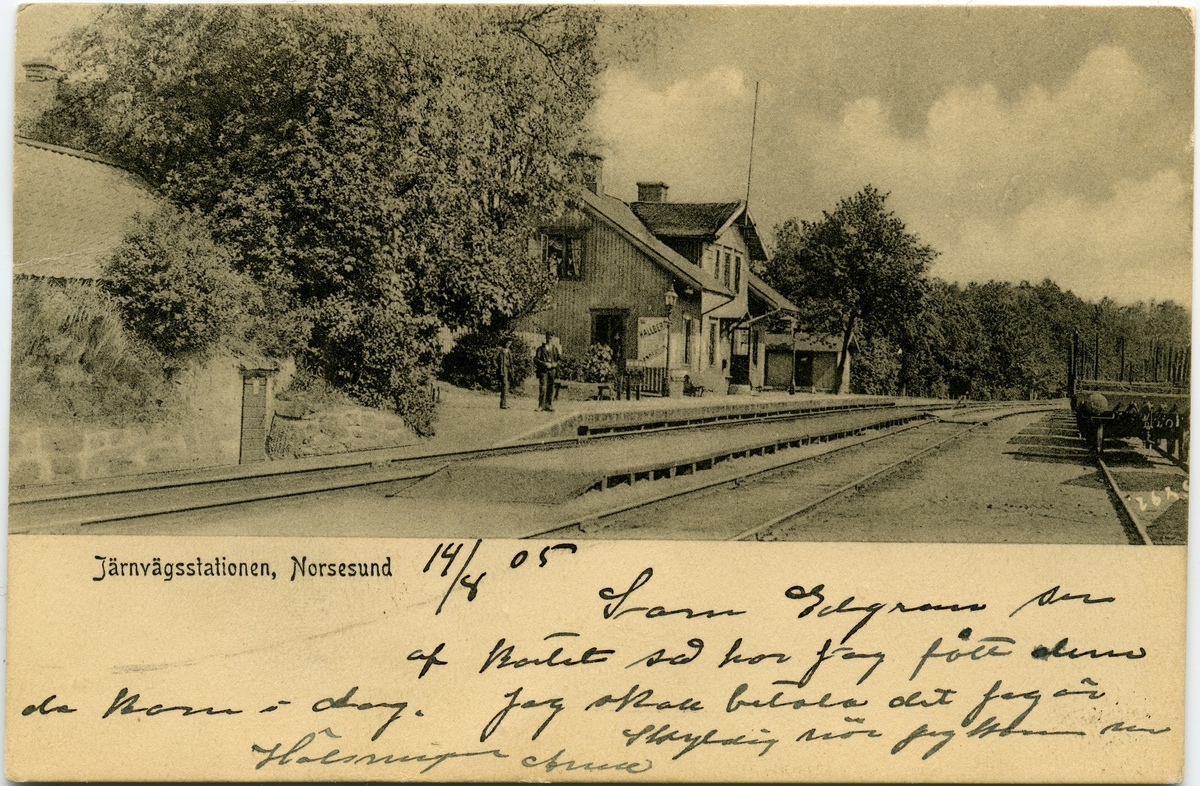 HALLBERG
2625
Järnvägsstationen, Norsesund
14/8 05
Som Edgran ser
af kortet så har jag fått dem
de kom i dag. Jag skall betala det jag är
Skyldig när jag kommer
Hälsningar Anna